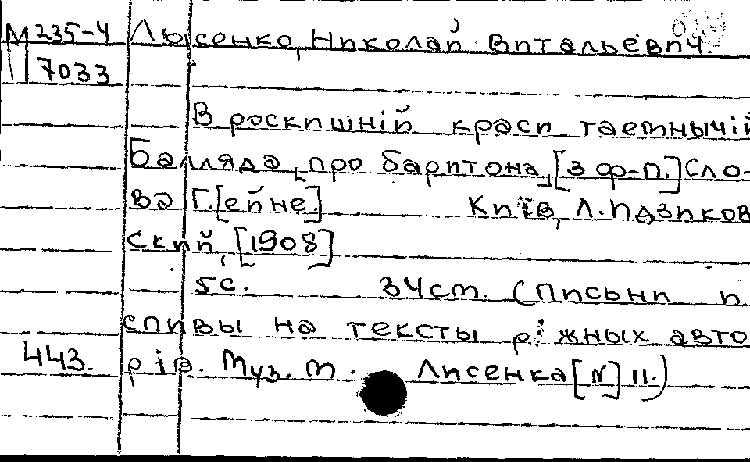 М 235-4 Лысенко, Николай Витальевич
7033
В роскишній краси таемнычій
Балляда про баритона, [з ф-п.] Сло-
ва Г.[ейне] Киів, Л. Идзиков
ский, [1908]
5с. 34ст. (Писыни и
спивы на тексты ріжных авто
443. рів. Муз. М. Лисенка [N] 11.)